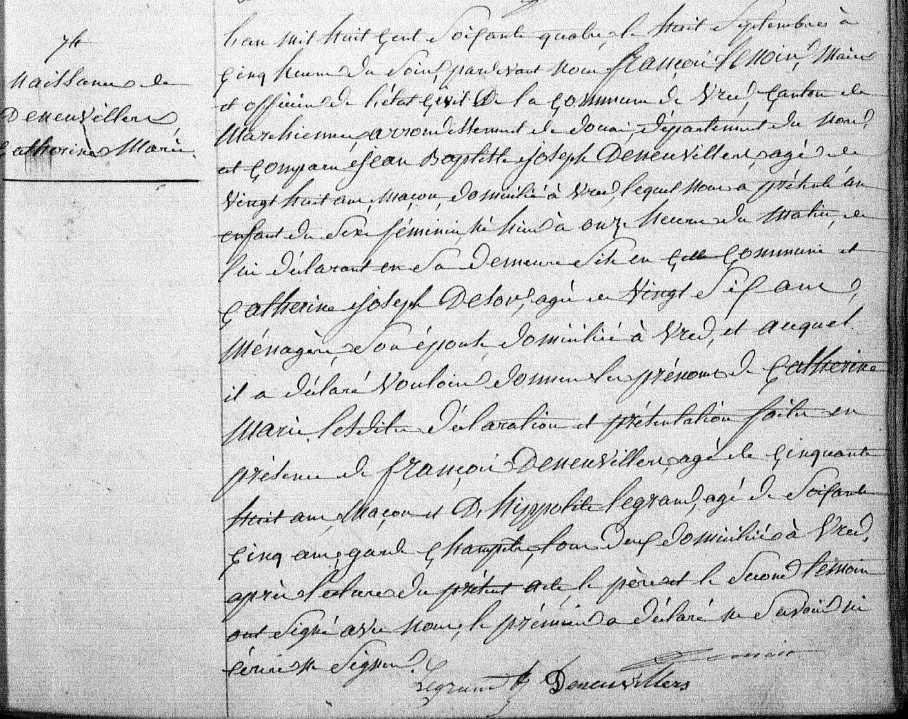 74
naissance de
Deneuvillers
Catherine Marie.
L'an mil huit cent soixante quatre, le huit Septembre à
cinq heure du soir, pardevant nous françois Lenoir, Maire
et officier de l'état civil de la commune de Vred, canton de
Marchiennes, arrondissement de douai, département du nord,
est comparu jean Baptiste joseph Deneuvillers, agé de
vingt huit ans, Maçon, domicilié à Vred, lequel nous a présenté un
enfant du sexe féminin, né hier à onze heure du Matin, de
lui déclarant en sa demeure sise en cette commune et
Catherine joseph agée de vingt six ans,
Ménagère, son épouse, domiciliée à Vred, et auquel
il a déclaré vouloir donner les prénoms de Catherine
Marie lesdites déclaration et présentation faites en
présence de françois Deneuvillers agé de cinquante
huit ans, Maçon et D. hippolite legrand, agé de soixante
cinq ans, garde champêtre, tous deux domiciliés à Vred,
après lecture du présent acte le père et le second témoin
ont signé avec nous, le prémier a déclaré ne savoir ni
écrire ni signer.
Legrand Deneuvillers